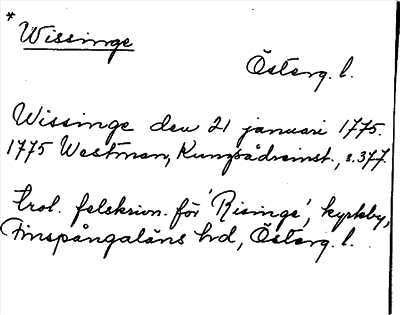 * Wissinge
Österg. l.
Wissinge den 21 januari 1775.
1775 Westman, Kungsådreinst., s. 377.
trol. felskrivn. för 'Risinge', kyrkby,
Finspångaläns hd, Österg. l.